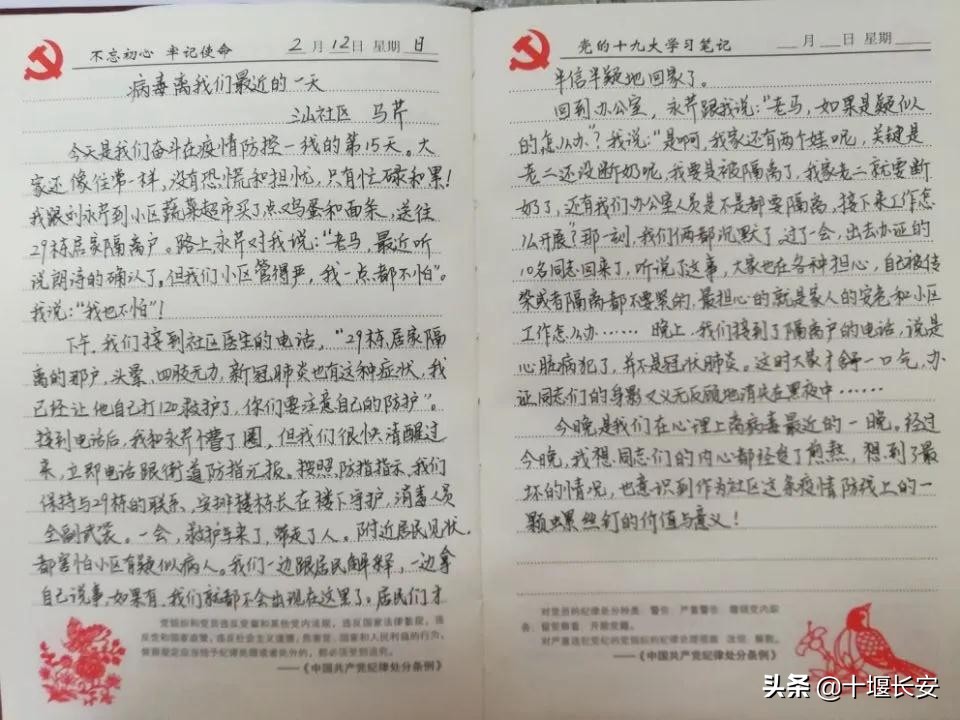 不忘初心 牢记使命 2月12日 星期 日
病毒离我们最近的一天
汕社区 马芹
今天是我们奋斗在疫情防控一线的第15天。大
家还像往常一样,没有恐慌和担忧,只有忙碌和累!
我跟刘永芹到小区蔬菜超市买了点鸡蛋和面条,送往
29栋居家隔离户。路上永芹对我说:“老马,最近听
说朗诗的确认了,但我们小区管得严,我一点都不怕”。
我说:“我也不怕”!
下午,我们接到社区医生的电话,“29栋居家隔
离的那户,头晕,四肢无力,新冠肺炎也有这种症状,我
已经让他自己打120救护了,你们要注意自己的防护”。
接到电话后,我和永芹懵了圈,但我们很快清醒过
来,立即电话跟街道防指汇报。按照防指指示,我们
保持与29栋的联系,安排楼栋长在楼下守护,消毒人员
全副武装。一会,救护车来了,带走了人。附近居民见状,
都害怕小区有疑似病人。我们一边跟居民解释,一边拿
自己说事,如果有,我们就都不会出现在这里了。居民们才
党组织和党员违反党章和其他党内法规,违反国家法律法规,违
反党和国家政策,违反社会主义道德,危害党、国家和人民利益的行为,
依照规定应当给予纪律处理或者处分的,都必须受到追究。
——《中国共产党纪律处分条例》
党的十九大学习笔记 月 日 星期
半信半疑地回家了。
回到办公室,永芹跟我说:“老马,如果是疑似
的怎么办”?我说:“是啊,我家还有两个娃呢,关键是
老二还没断奶呢,我要是被隔离了,我家老二就要断
奶了,还有我们办公室人员是不是都要隔离,接下来工作怎
么开展?那一刻,我们俩都沉默了。过了一会,出去办证的
10名同志回来了,听说了这事,大家也在各种担心,自己被传
染或者隔离都不要紧的,最担心的就是家人的安危和小区
工作怎么办…… 晚上,我们接到了隔离户的电话,说是
心脏病犯了,并不是冠状肺炎。这时大家才舒一口气,办
证同志们的身影又义无反顾地消失在黑夜中……
今晚是我们在心理上离病毒最近的一晚。经过
今晚,我想同志们的内心都经受了煎熬,想到了最
坏的情况,也意识到作为社区这条疫情防线上的一
颗螺丝钉的价值与意义!
对党员的纪律处分种类:警告、严重警告、撤销党内职
务、留党察看、开除党籍。
对严重违犯党纪的党组织的纪律处理措施:改组、解散。
——《中国共产党纪律处分条例》
头条 @十堰长安